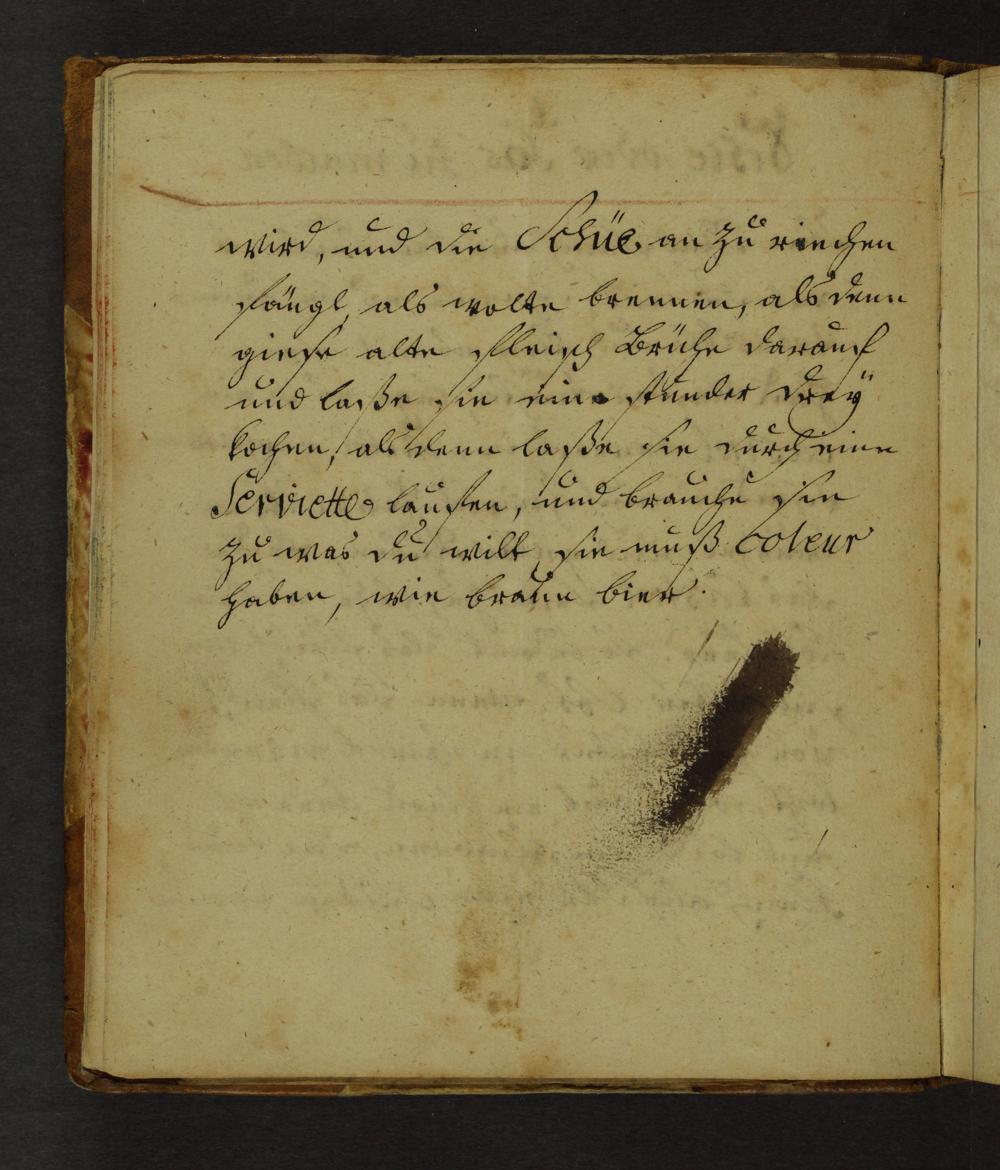 wird, und die Schüe an zu riechen
fängt, als wolte brennen, als denn
giese alte fleisch Brühe darauf
und laße sie eine stunder dreÿ
kochen, als denn laße sie durch eine
Serviette lauffen, und brauche sie
zu was du wilt, sie muß coleur
haben, wie braun bier.